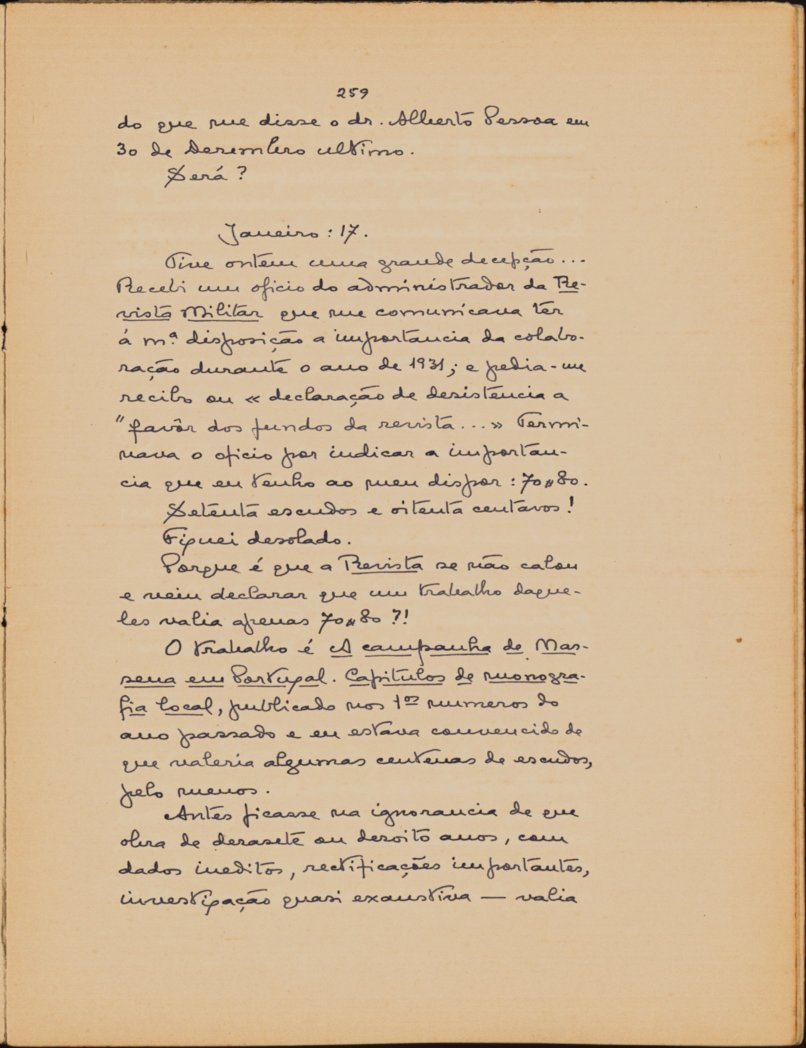 259
do que me disse o dr. Alberto Pessoa em
30 de Dezembro ultimo.
Será?
Janeiro: 17.
Tive ontem uma grande decepção...
Recebi um oficio do administrador da Re-
vista Militar que me comunicava ter
á m.ª disposição a importancia da colabo-
ração durante o ano de 1931; e pedia-me
recibo ou « declaração de desistencia a
"favôr dos fundos da revista...» Termi-
nava o oficio por indicar a importan-
cia que eu tenho ao meu dispor: 70$80.
Setenta escudos e oitenta centavos!
Fiquei desolado.
Porque é que a Revista se não calou
e veiu declarar que um trabalho daque-
les valia apenas 70$80?!
O trabalho é A campanha de Mas-
sena em Portugal. Capitulos de monogra-
fia local, publicado nos 1os numeros do
ano passado e eu estava convencido de
que valeria algumas centenas de escudos,
pelo menos.
Antes ficasse na ignorancia de que
obra de dezasete ou dezoito anos, com
dados ineditos, rectificações importantes,
investigação quasi exaustiva — valia